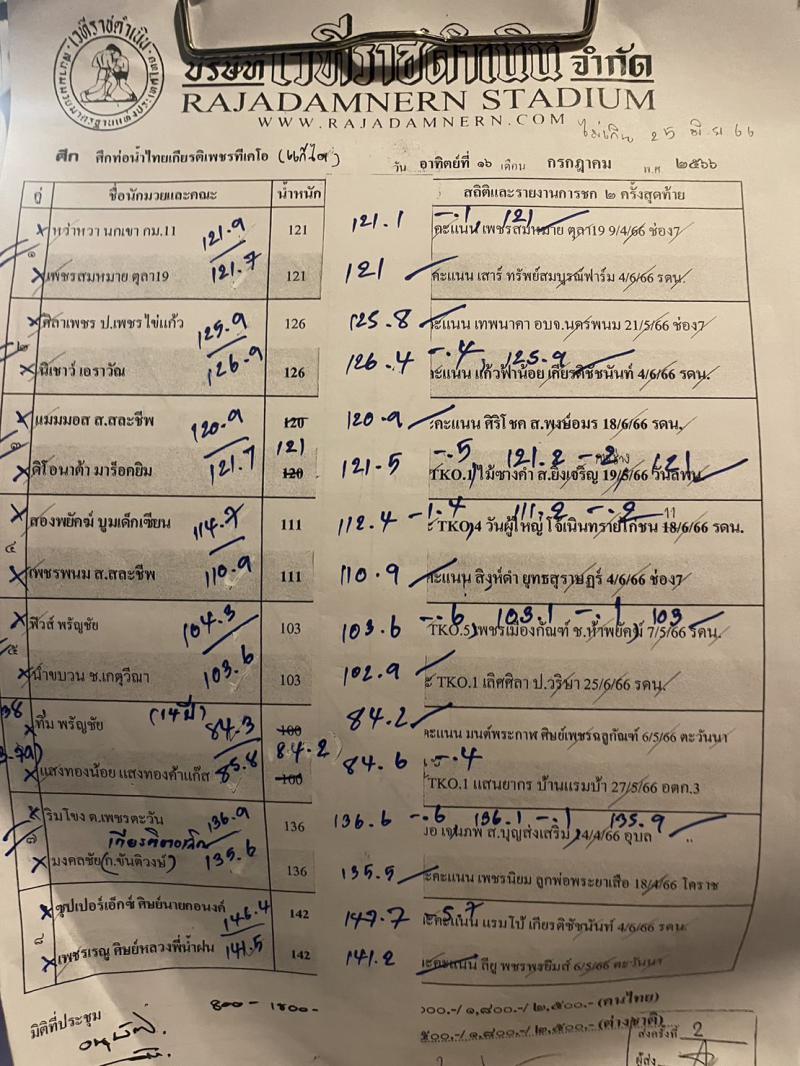 เวทีราชดำเนิน
บริษัท เวทีราชดำเนิน จำกัด
RAJADAMNERN STADIUM
WWW.RAJADAMNERN.COM
ไม่เกิน 25 มิ.ย 66
ศึก ศึกท่อน้ำไทยเกียรติเพชรทีเคโอ (แก้ไข) วัน อาทิตย์ที่ ๑๖ เดือน กรกฎาคม พ.ศ ๒๕๖๖
คู่ ชื่อนักมวยและคณะ น้ำหนัก สถิติและรายงานการชก ๒ ครั้งสุดท้าย
๑ หว่าหวา นกเขา กม.11 121.9 121 121.1 -.1 121 คะแนน เพชรสมหมาย ตุลา19 9/4/66 ช่อง7
เพชรสมหมาย ตุลา19 121.7 121 121 คะแนน เสาร์ ทรัพย์สมบูรณ์ฟาร์ม 4/6/66 รดน.
๒ ศิลาเพชร ป.เพชรไข่แก้ว 125.9 126 125.8 คะแนน เทพนาคา อบจ.นครพนม 21/5/66 ช่อง7
นิเชาว์ เอราวัณ 126.9 126 126.4 -.4 125.9 คะแนน แก้วฟ้าน้อย เกียรติชัชนันท์ 4/6/66 รดน.
๓ แมมมอส ส.สละชีพ 120.9 120 120.9 คะแนน ศิริโชค ส.พงษ์อมร 18/6/66 รดน.
ดิโอนาด้า มาร็อคยิม 121.7 120 121 121.5 -.5 121.2 -.2 121 TKO.1 ไม้ซางคำ ส.ยิ่งเจริญ 19/5/66
๔ สองพยัคฆ์ บูมเด็กเซียน 114.7 111 112.4 -1.4 111.2 -.2 11 TKO4 วันผู้ใหญ่ 18/6/66 รดน.
เพชรพนม ส.สละชีพ 110.9 111 110.9 คะแนน สิงห์ดำ ยุทธสุราษฎร์ 4/6/66 ช่อง7
๕ ฟิวส์ พรัญชัย 104.3 103 103.6 -.6 103.1 -.1 103 TKO.5 เพชรเมืองกัณฑ์ ช.ห้าพยัคฆ์ 7/5/66 รดน.
น้ำขบวน ช.เกตุวีณา 103.6 103 102.9 TKO.1 เลิศศิลา ป.วริษา 25/6/66 รดน.
ทิม พรัญชัย (14ปี) 84.3 100 84.2 84.2 คะแนน มนต์พระกาฬ ศิษย์เพชรฉลูกัณฑ์ 6/5/66 ตะวันนา
แสงทองน้อย แสงทองค้าแก๊ส 85.8 100 84.6 -.4 TKO.1 แสนยากร บ้านแรมบ้า 27/5/66 อตก.3
๗ ริมโขง ต.เพชรตะวัน 136.9 136 136.6 -.6 136.1 -.1 135.9 ส.บุญส่งเสริม 14/4/66 อุบล
มงคลชัย (ก.ขันติวงษ์) 135.6 136 135.5 คะแนน เพชรนิยม ลูกพ่อพระยาเสือ 18/4/66 โคราช
๘ ซุปเปอร์เอ็กซ์ ศิษย์นายกอนงค์ 146.4 142 147.7 -5.7 คะแนน แรมโบ้ เกียรติชัชนันท์ 4/6/66 รดน.
เพชรเรณู ศิษย์หลวงพี่น้ำฝน 141.5 142 141.2 คะแนน ลียู พชรพงยิมส์ 6/5/66 ตะวันนา
มิติที่ประชุม 800- 1800- ๑,๘๐๐.-/ ๒,๕๐๐.- (คนไทย)
๑,๘๐๐.-/ ๒,๕๐๐.- (ต่างชาติ)
ส่งครั้งที่ 2
ผู้ส่ง